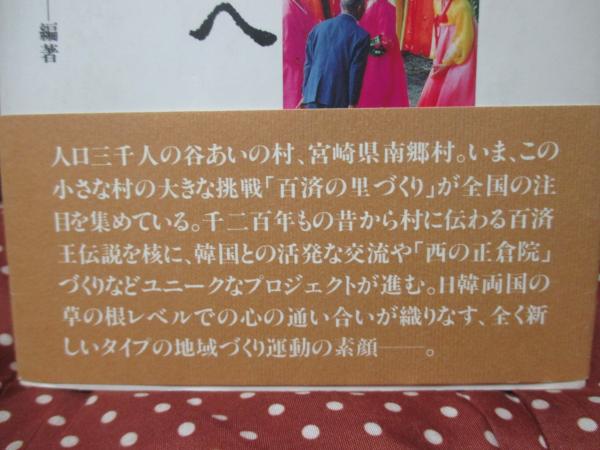 編著
へ
人口三千人の谷あいの村、宮崎県南郷村。いま、この
小さな村の大きな挑戦「百済の里づくり」が全国の注
目を集めている。千二百年もの昔から村に伝わる百済
王伝説を核に、韓国との活発な交流や「西の正倉院」
づくりなどユニークなプロジェクトが進む。日韓両国の
草の根レベルでの心の通い合いが織りなす、全く新
しいタイプの地域づくり運動の素顔——。